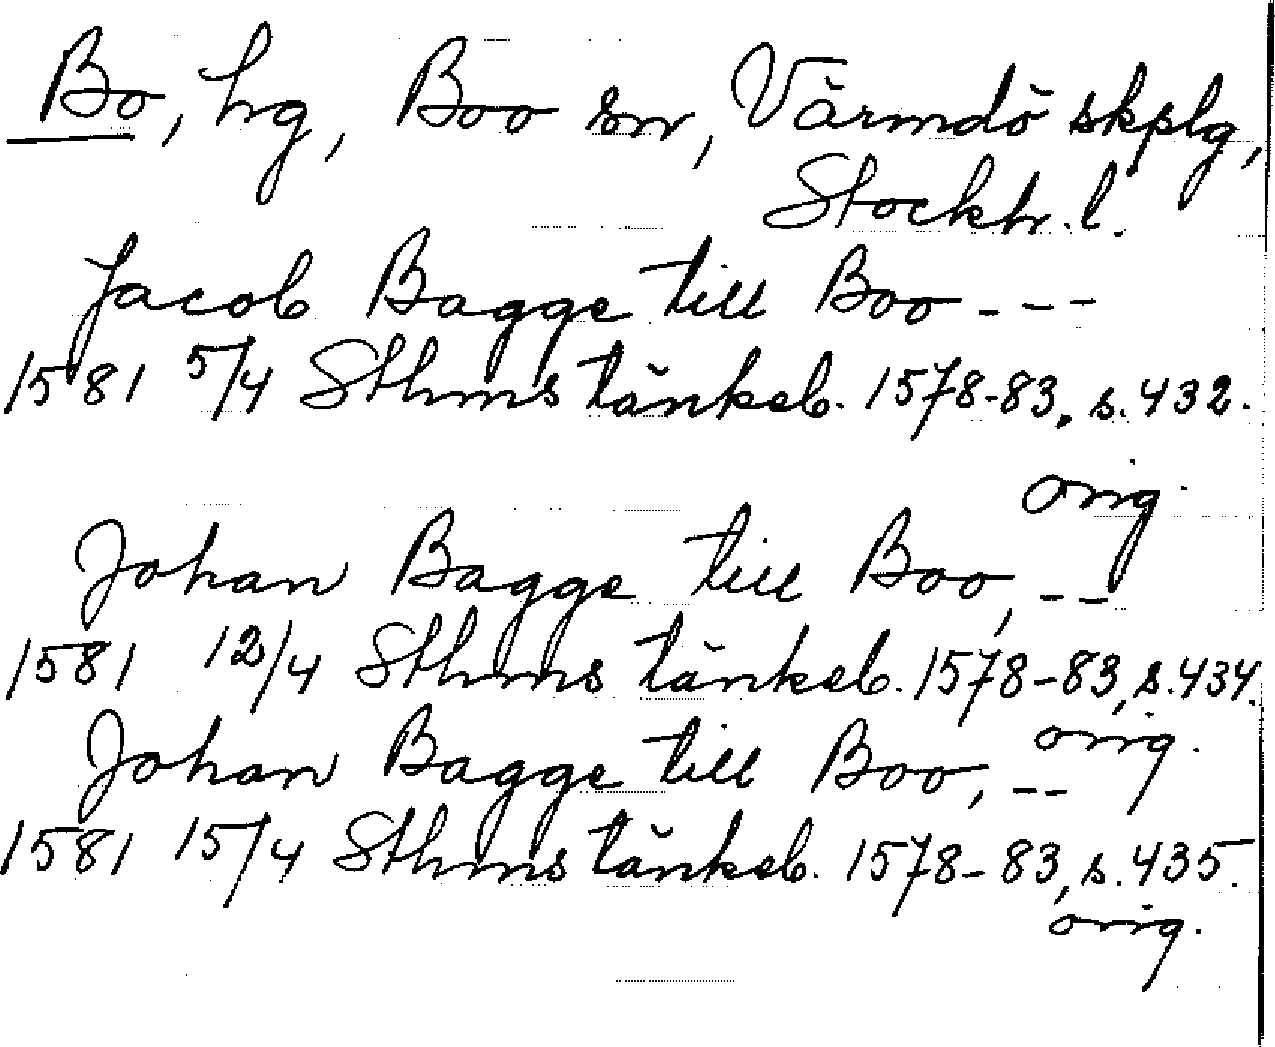 Bo, hg, Boo sn, Värmdö skplg,
Stockh. l.
Jacob Bagge till Boo - - -
1581 5/4 Sthms tänkeb. 1578-83, s. 432.
orig.
Johan Bagge till Boo, - -
1581 12/4 Sthms tänkeb. 1578-83, s. 434.
orig.
Johan Bagge till Boo, - -
1581 15/4 Sthms tänkeb. 1578-83, s. 435.
orig.